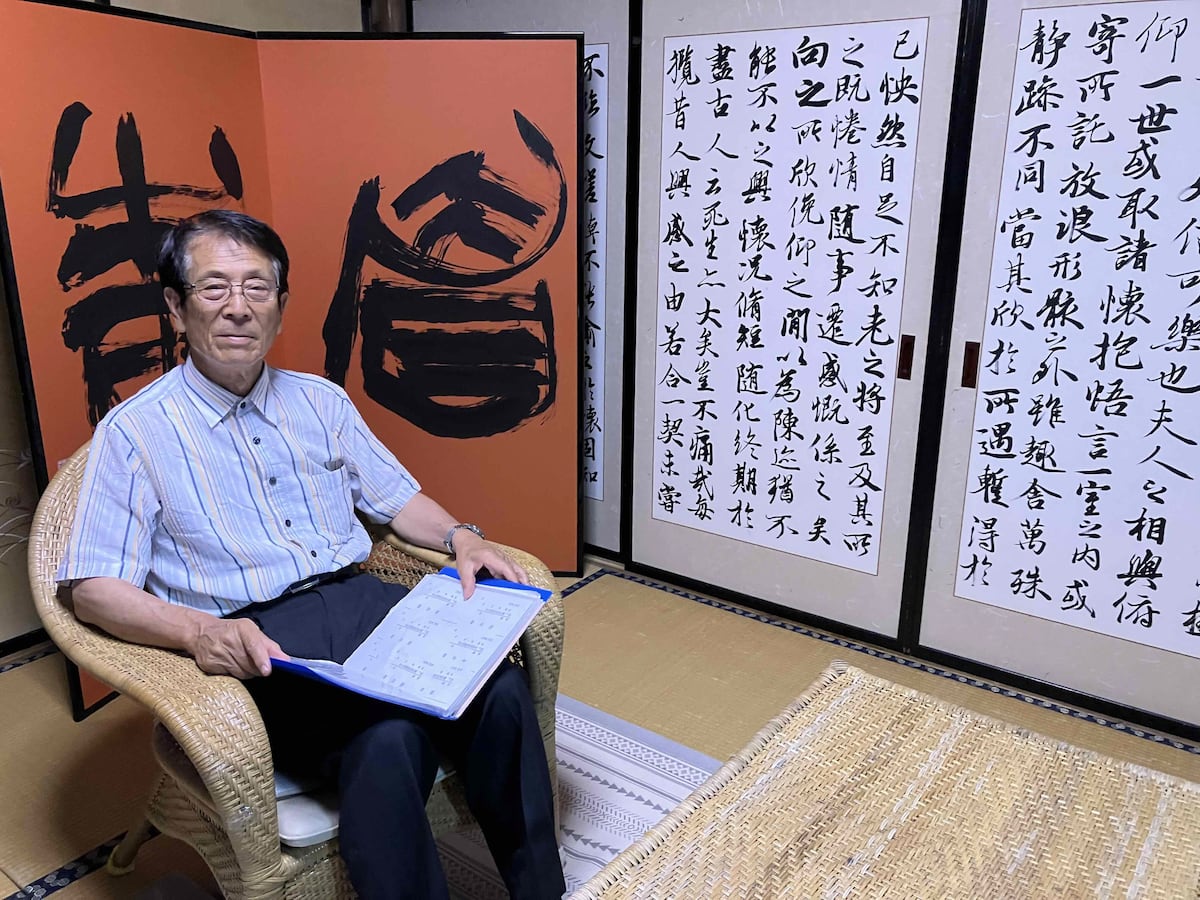 信可樂也夫人之相與俯
仰一世或取諸懷抱悟言一室之内或
寄所託放浪形骸之外雖趣舍萬殊
靜躁不同當其欣於所遇暫得於
己怏然自足不知老之將至及其所
之既惓情隨事遷感慨係之矣
向之所欣俛仰之閒以為陳迹猶不
能不以之興懷況脩短隨化終期於
盡古人云死生亦大矣豈不痛哉每
攬昔人興感之由若合一契未嘗
不臨文嗟悼不能喻之於懷固知